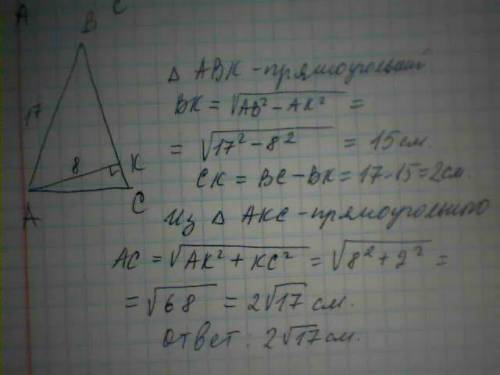 A
C
B
17
8
K
A
C
Δ ABK - прямоугольный
BK = √AB² - AK² =
= √17² - 8² = 15 см.
CK = BC - BK = 17 - 15 = 2 см.
Из Δ AKC - прямоугольного
AC = √AK² + KC² = √8² + 2² =
= √68 = 2√17 см.
ответ: 2√17 см.